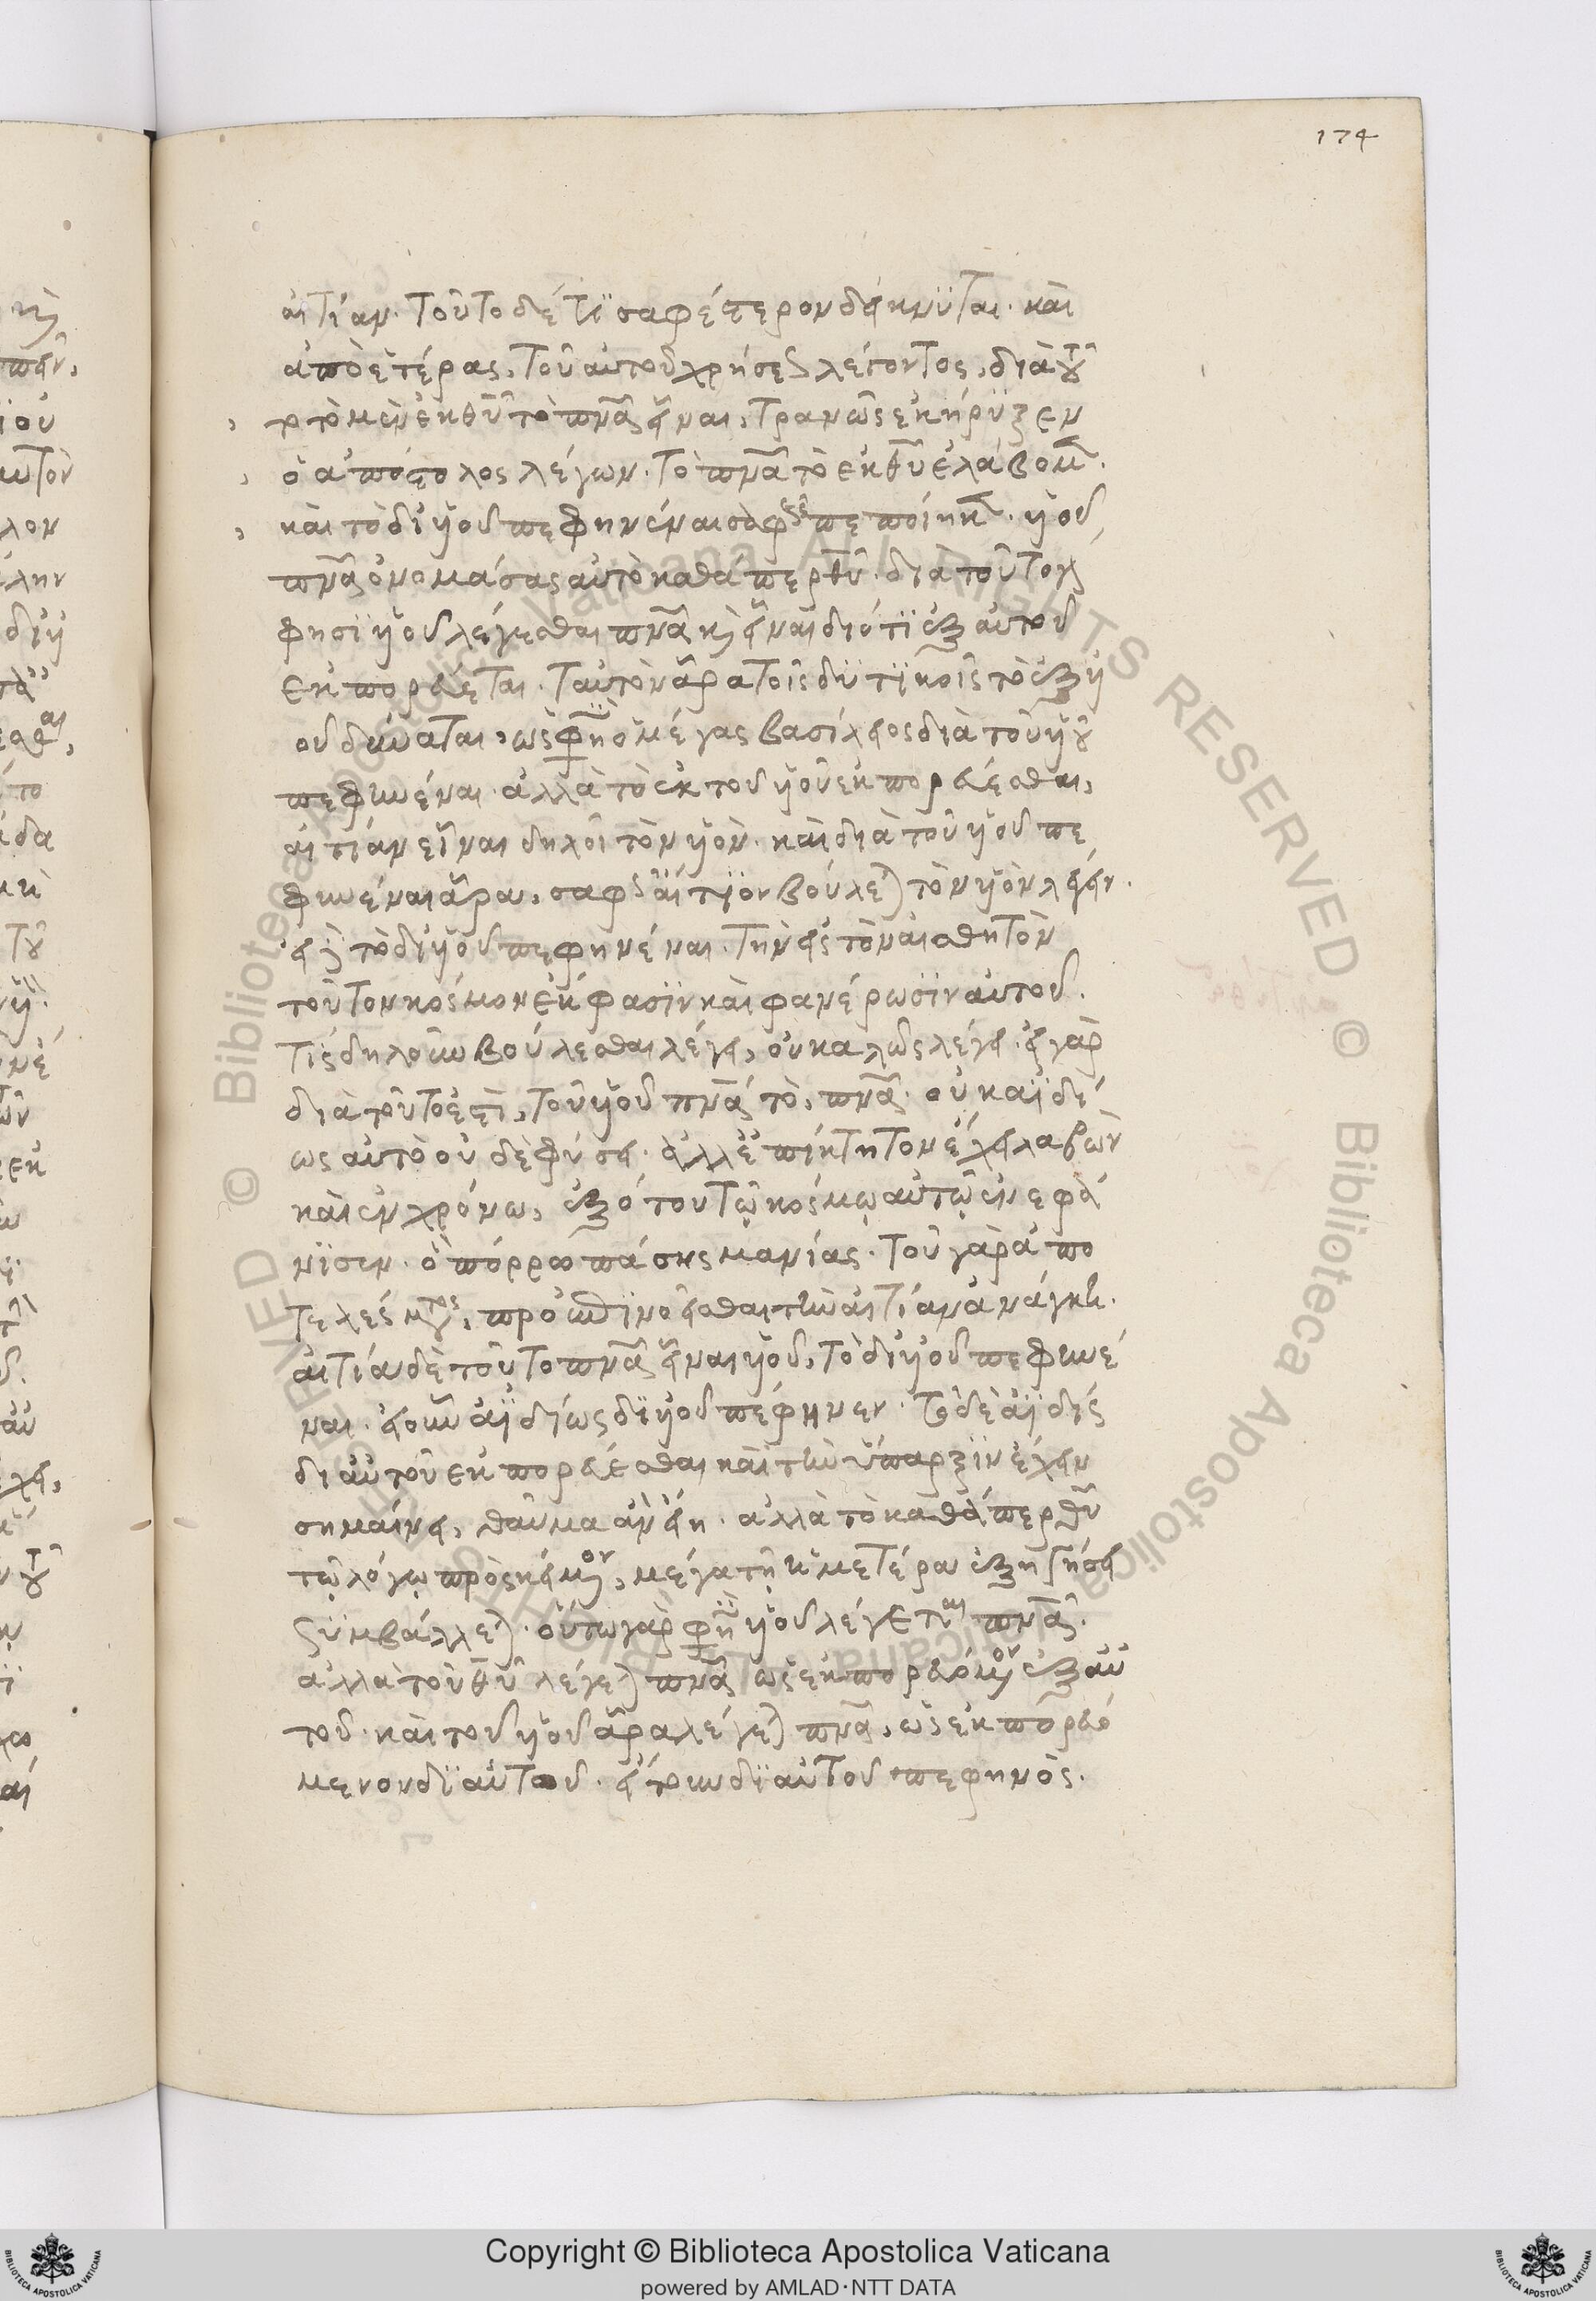 174
αἰτίαν. τοῦτο δέ τι σαφέστερον δείκνϋται. καὶ
ἀπὸ ἑτέρας, τοῦ αὐτοῦ χρήσεως λέγοντος, διὰ τοῦ
το τὸ μὲν ἐκ θυ τὸ πνα εἶναι, τρανῶς ἐκήρϋξεν
ὁ ἀπόστολος λέγων. τὸ πνα τὸ ἐκ θυ ἐλάβομεν.
καὶ τὸ δι' ϋἱοῦ πεφηνέναι σαφὲς πεποίηκεν. ϋἱοῦ
πνα ὀνομάσας αὐτὸ καθάπερ θυ. διὰ τοῦτο γὰρ
φησὶ ϋἱοῦ λέγεσθαι πνα καὶ εἶναι διότϊ ἐξ αὐτοῦ
ἐκπορεύεται. ταυτὸν ἄρα τοῖς δυτικοῖς τὸ ἐξ ϋἱ
οῦ δύναται, ὥς φησιν ὁ μέγας βασίλειος διὰ τοῦ ϋἱοῦ
πεφηνέναι. ἀλλὰ τὸ ἐκ τοῦ ϋἱοῦ ἐκπορεύεσθαι,
αἰτίαν εἶναι δηλοῖ τὸν ϋἱὸν. καὶ διὰ τοῦ ϋἱοῦ πε
φηνέναι ἄρα, σαφῶς αἴτϊον βούλεται τὸν ϋἱὸν λέγειν.
εἰ δὲ τὸ δι' ϋἱοῦ πεφηνέναι. τὴν εἰς τὸν αἰσθητὸν
τοῦτον κόσμον ἔκφασϊν καὶ φανέρωσϊν αὐτοῦ.
τϊς δηλοῦν βούλεσθαι λέγει, οὐ καλῶς λέγει. εἰ γὰρ
διὰ τοῦτο ἐστὶ, τοῦ ϋἱοῦ πνα τὸ, πνα. οὐκ ἀϊδί
ως αὐτὸ οὐδὲ φύσει. ἀλλ' ἐπίκτητον ἔχει λαβὼν
καὶ ἐν χρόνω, ἐξ ὅτου τῷ κόσμῳ αὐτῷ ἐνεφά
νϊσεν. ὃ πόρρω πάσης μανίας. τοῦ γὰρ ἀπο
τελέσματος, προεπϊνοεῖσθαι τὴν αἰτίαν ἀνάγκη.
αἰτία δὲ τοῦ τὸ πνα εἶναι ϋἱοῦ, τὸ δι' ϋἱοῦ πεφηνέ
ναι. εἰ οὖν ἀϊδίως δι' ϋἱοῦ πέφηνεν. τὸ δὲ ἀϊδίως
δι' αὐτοῦ ἐκπορεύεσθαι καὶ τὴν ὕπαρξϊν ἔχειν
σημαίνει, θαῦμα ἂν εἴη. ἀλλὰ τὸ καθάπερ θυ
τῷ λόγῳ προσκείμενον, μέγα τῇ ἡμετέρα ἐξηγήσει
ζϋμβάλλεται. οὕτω γὰρ φησιν ϋἱοῦ λέγεται πνα.
ἀλλὰ τοῦ θυ λέγεται πνα ὡς ἐκπορευόμενον ἐξ αὐ
τοῦ. καὶ τοῦ ϋἱοῦ ἄρα λέγεται πνα, ὡς ἐκπορευό
μενον δϊ αὐτοῦ. εἴτουν δϊ αὐτοῦ πεφηνὸς.
Copyright © Biblioteca Apostolica Vaticana
powered by AMLAD·NTT DATA